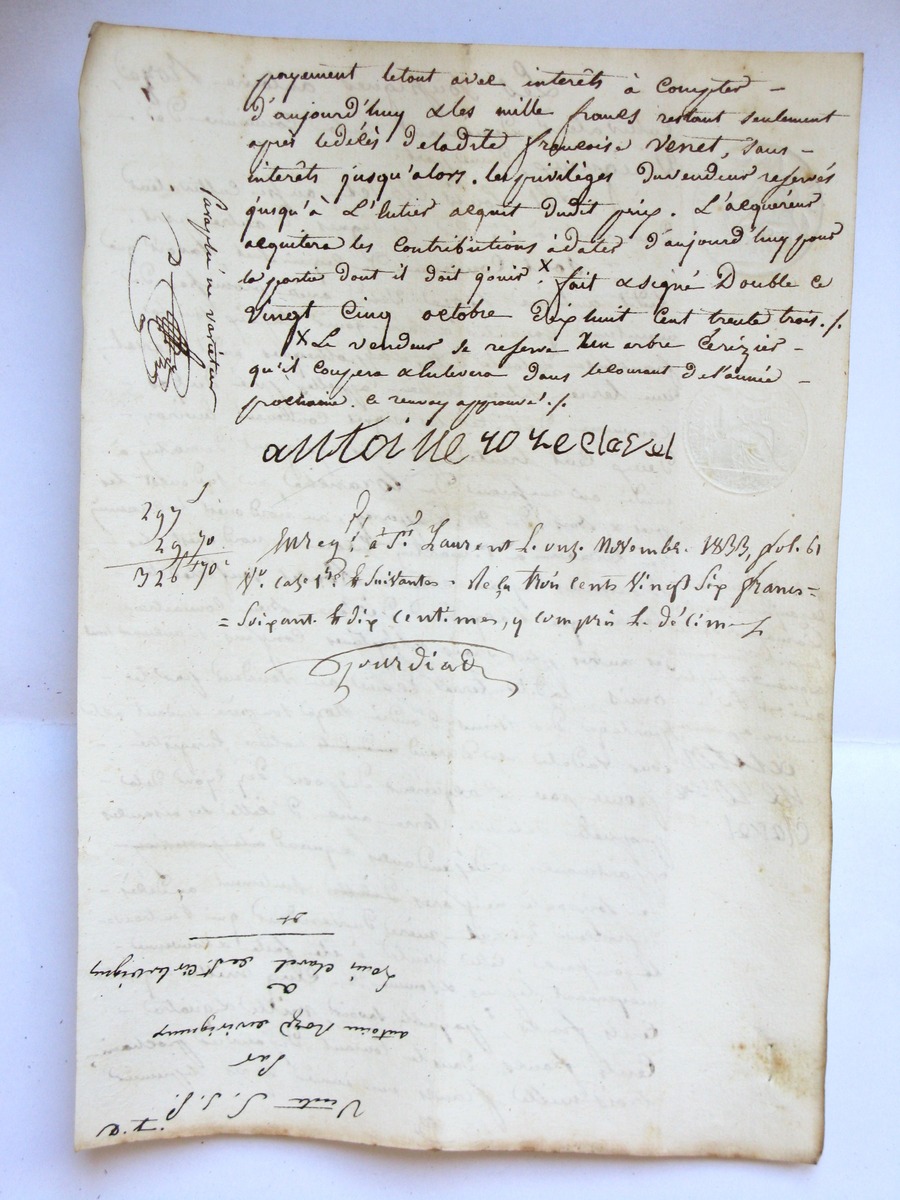 payement letout avec interêts à Compter -
d'aujourd'huy & les mille francs restant seulement
après ledécès deladite françoise Venet, sans -
interêts jusqu'alors. les privilèges duvendeur reservés
jusqu'à L'entier acquit dudit prix. L'acquéreur
acquitera les Contributions àdater d'aujourd'huy pour
la partie dont il doit jouir x. fait & signé Double Ce
Vingt Cinq octobre Dix huit Cent trente trois./.
x Le vendeur se reserve un arbre Cerizier -
qu'il Coupera & Enlevera dans lecourant del'année -
prochaine. Ce renvoy approuvé./.
antoine roze Clavel
Paraphé ne varietur
297
29 70
326 70
Enregt. à St. Laurent Le onze Novembre 1833, fol. 61
Vo. case 1re & Suivantes - Reçu trois cents vingt Six francs =
= Soixante & dix centimes, y compris Le décime
Vente S. S. P.
Par
antoine Roze
a
Louis Clavel